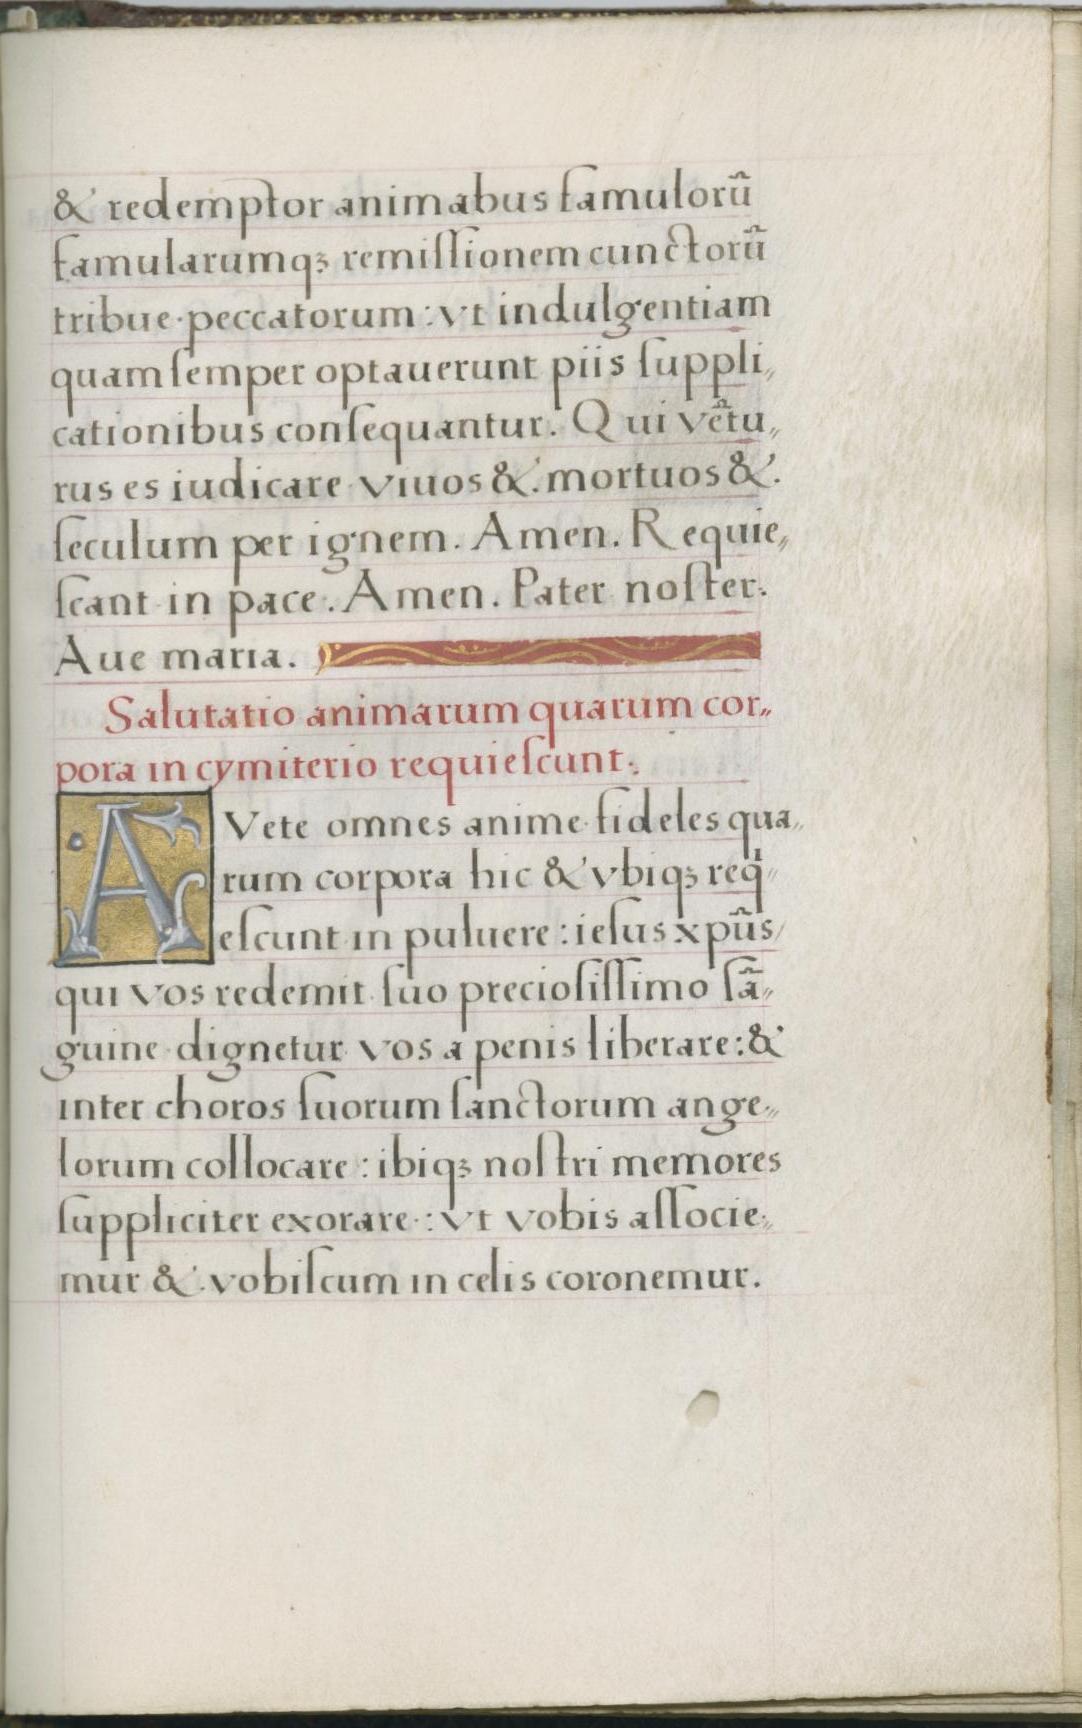 & redemptor animabus famulorũ
famularumqꝫ remiſſionem cunctorũ
tribue peccatorum: vt indulgentiam
quam ſemper optauerunt piis ſuppli„
cationibus conſequantur. Qui vẽtu„
rus es iudicare viuos &. mortuos &.
ſeculum per ignem. Amen. Requie„
ſcant in pace. Amen. Pater noſter.
Aue maria.
Salutatio animarum quarum cor„
pora in cymiterio requieſcunt.
AVete omnes anime fideles qua„
rum corpora hic & vbiqꝫ reqͥ„
eſcunt in puluere: ieſus xpũs
qui vos redemit ſuo precioſiſſimo ſã„
guine dignetur vos a penis liberare: &
inter choros ſuorum ſanctorum ange„
lorum collocare: ibiqꝫ noſtri memores
ſuppliciter exorare: vt vobis aſſocie„
mur &. vobiſcum in celis coronemur.